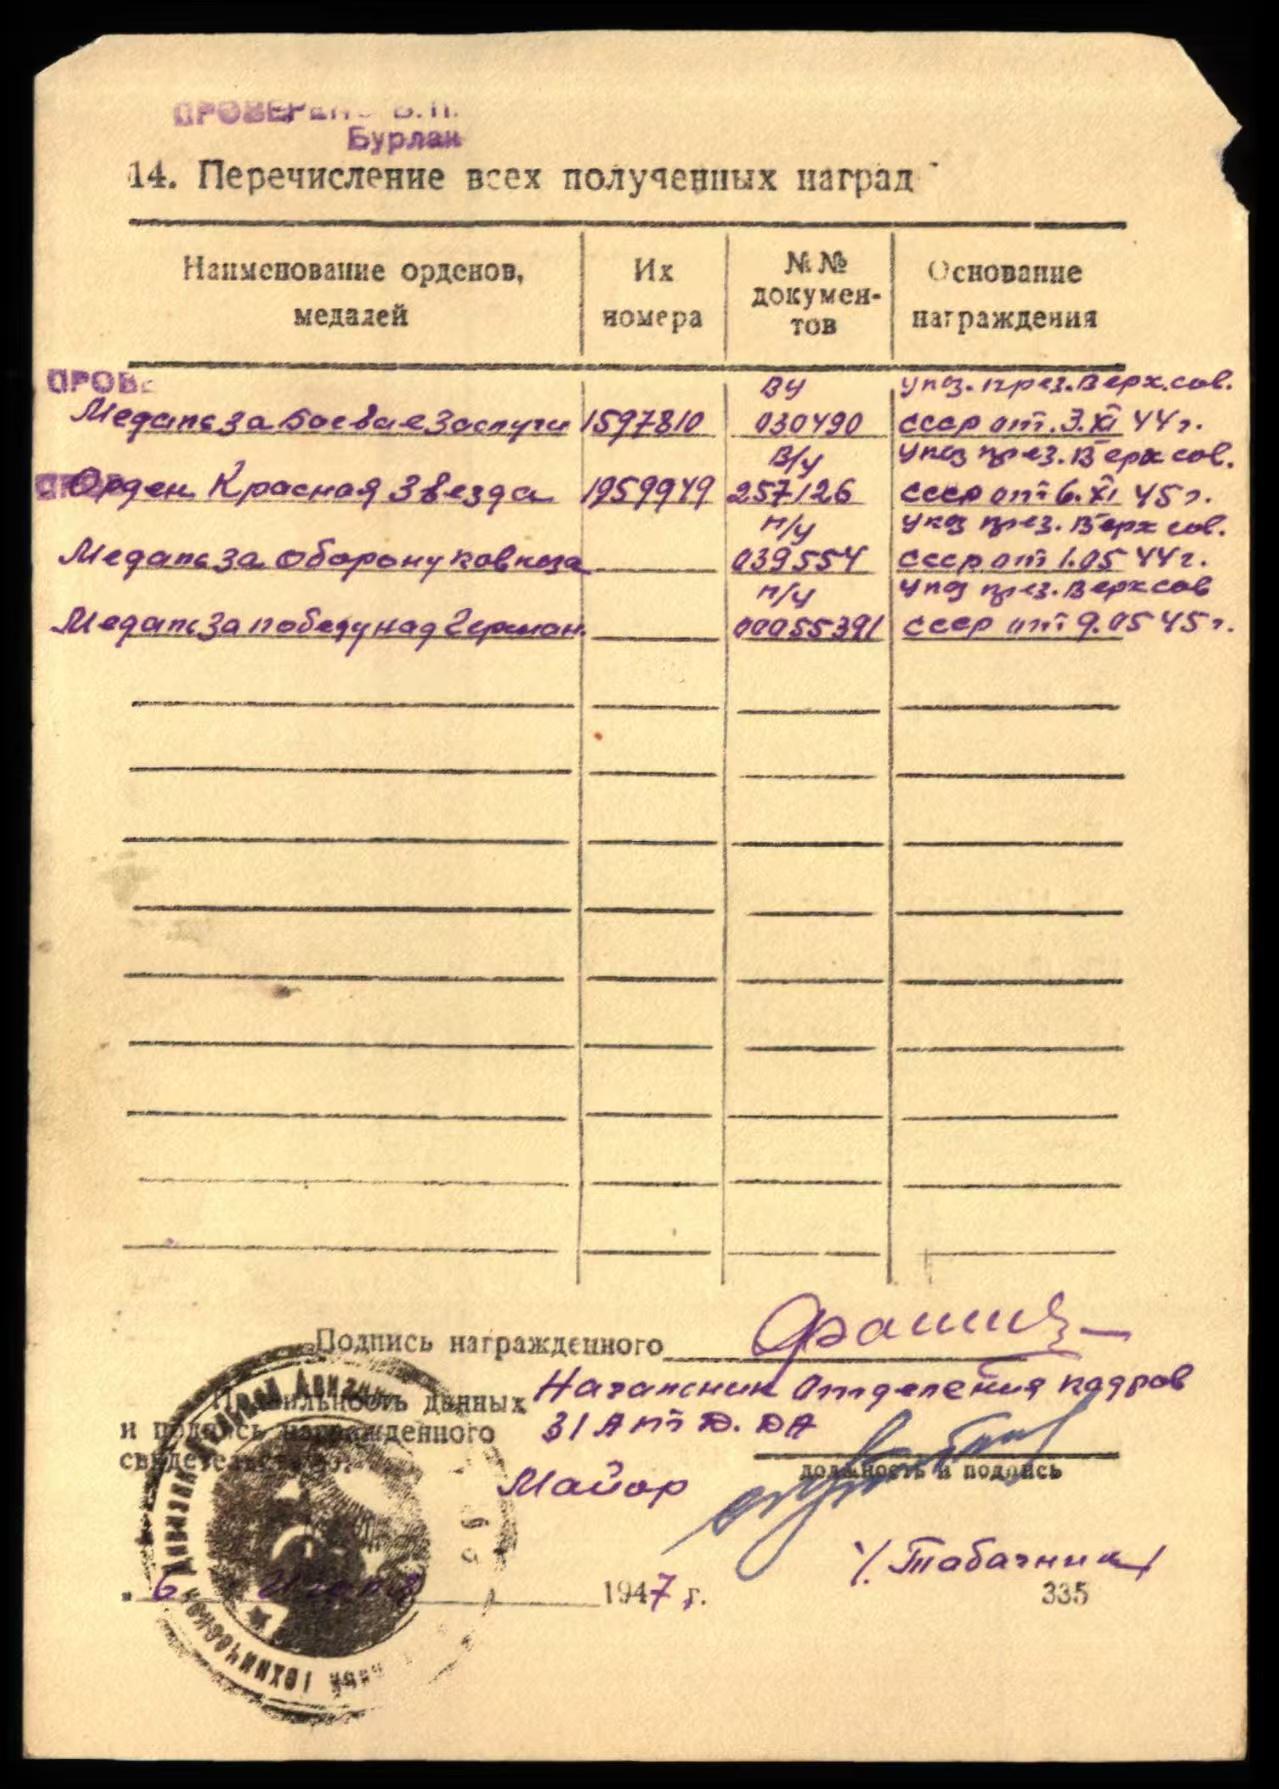 ПРОВЕРЕНО В.П.
Бурлак
14. Перечисление всех полученных наград
Наименование орденов, медалей
Их номера
№№ докумен-тов
Основание награждения
ПРОВЕ
ВУ Указ. през. Верх. сов.
Медаль за боевые заслуги 1597810 030490 СССР от. 3.XI 44 г.
В/У Указ през. Верх сов.
Орден Красная Звезда 1959949 257126 СССР от 6. XI 45 г.
н/у Указ през. Верх сов.
Медаль за оборону Кавказа 039554 СССР от 1.05 44 г.
н/у Указ през. Верх сов
Медаль За победу над Герман. 00055391 СССР от 9.05 45 г.
Подпись награжденного
Правильность данных
и подпись награжденного
свидетельствую.
Начальник Отделения кадров
31 Ат Д. ДА
должность и подпись
Майор
/. Табачник/
" 6 1947 г.
335